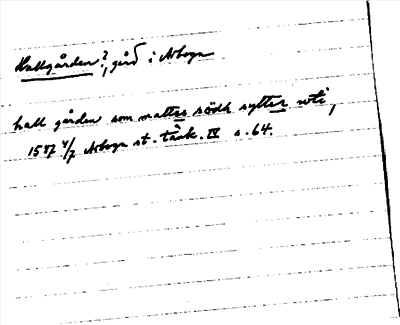 Hallgården?, gård i Arboga
hall gården som mattes södh sytter uti,
1587 4/7 Arboga st. tänk. IV s. 64.